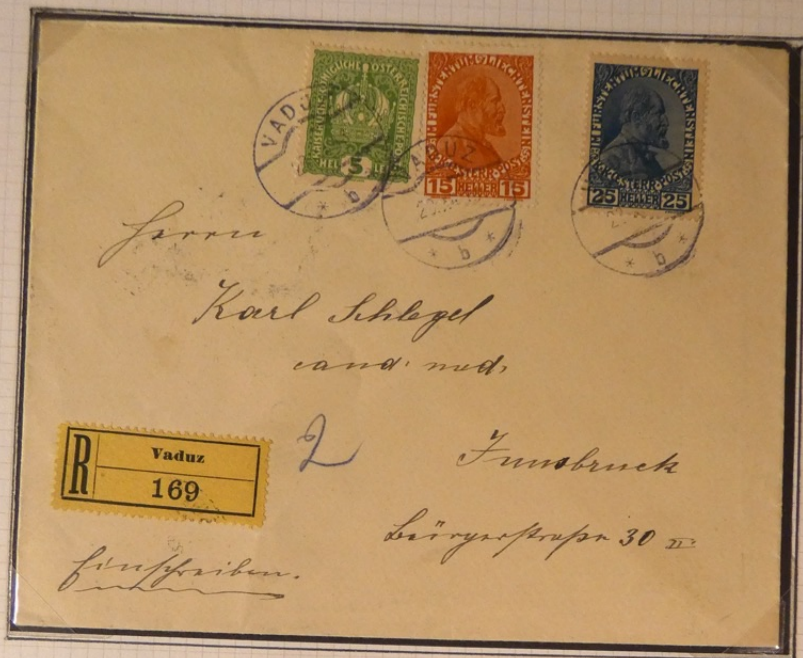 KAISERLICHE KÖNIGLICHE ÖSTERREICHISCHE POST
HELLER 5 HELLER
FÜRSTENTUM LIECHTENSTEIN
K.K. OESTERR. POST IM
15 HELLER 15
FÜRSTENTUM LIECHTENSTEIN
K.K. OESTERR. POST IM
25 HELLER 25
VADUZ
b
VADUZ
b
b
Herrn
Karl Schlegel
cand. med.
2
Innsbruck
Bürgerstraße 30 II.
R
Vaduz
169
Einschreiben.